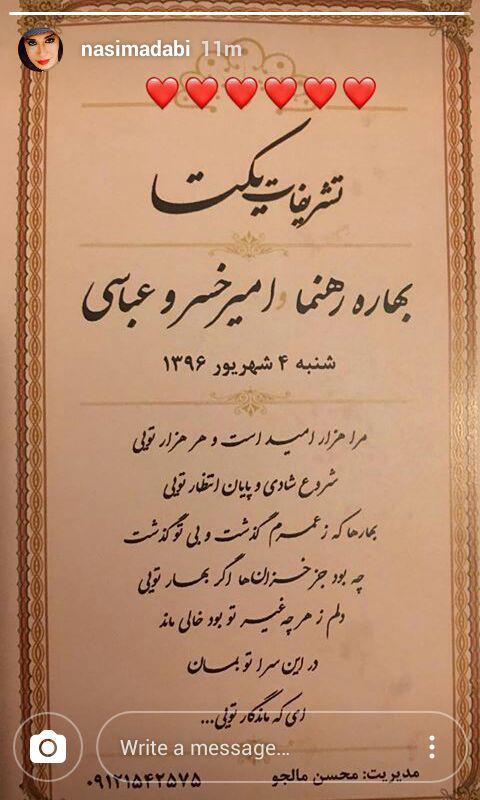 nasimadabi 11m
تشریفات یکتا
بهاره رهنما و امیرخسرو عباسی
شنبه ۴ شهریور ۱۳۹۶
مرا هزار امید است و هر هزار تویی
شروع شادی و پایان انتظار تویی
بهارها که ز عمرم گذشت و بی تو گذشت
چه بود جز خزان‌ها اگر بهار تویی
دلم ز هر چه غیر تو بود خالی ماند
در این سرا تو بمان
ای که ماندگار تویی...
Write a message...
مدیریت: محسن مالجو
۰۹۱۲۱۵۴۲۵۷۵